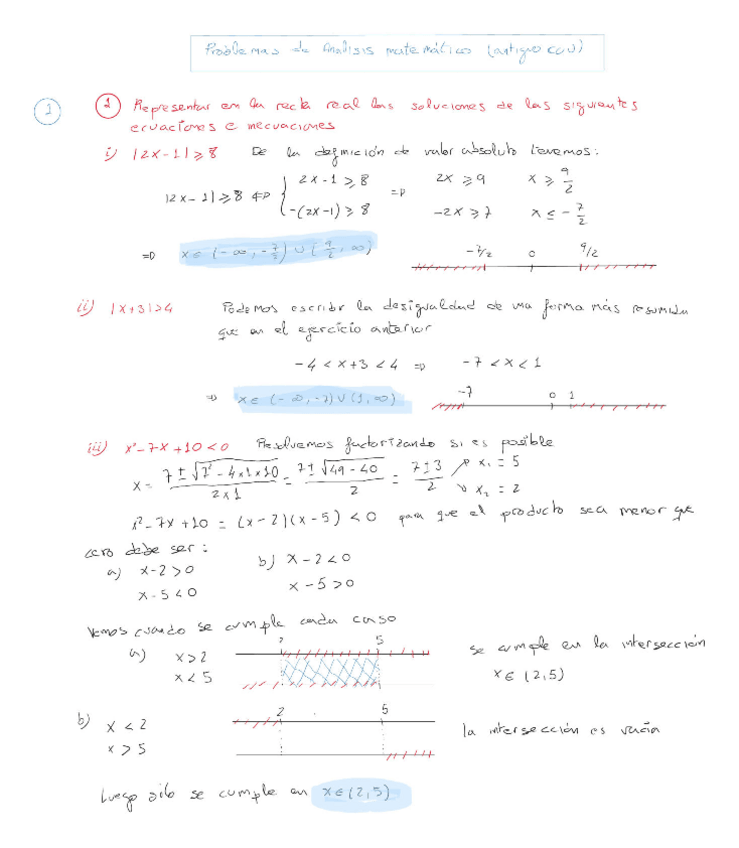 Problemas de Analisis matemático (antiguo COU)
1
1 Representar en la recta real las soluciones de las siguientes
ecuaciones e inecuaciones
i) |2x-1| ≥ 8 De la definición de valor absoluto tenemos:
|2x-1| ≥ 8 ⇔ { 2x-1 ≥ 8 ⇒ 2x ≥ 9 x ≥ 9/2
-(2x-1) ≥ 8 -2x ≥ 7 x ≤ -7/2
⇒ x ∈ (-∞, -7/2) ∪ (9/2, ∞) -7/2 0 9/2
ii) |x+3| > 4 Podemos escribir la desigualdad de una forma más resumida
que en el ejercicio anterior
-4 < x+3 < 4 ⇒ -7 < x < 1
⇒ x ∈ (-∞, -7) ∪ (1, ∞) -7 0 1
iii) x²-7x+10 < 0 Resolvemos factorizando si es posible
x = (7 ± √(7² - 4×1×10))/(2×1) = (7 ± √(49-40))/2 = (7±3)/2 x₁ = 5
x₂ = 2
x²-7x+10 = (x-2)(x-5) < 0 para que el producto sea menor que
cero debe ser:
a) x-2 > 0 b) x-2 < 0
x-5 < 0 x-5 > 0
Vemos cuando se cumple cada caso
a) x > 2 2 5 se cumple en la intersección
x < 5 x ∈ (2,5)
b) x < 2 2 5 la intersección es vacía
x > 5
Luego sólo se cumple en x ∈ (2,5)